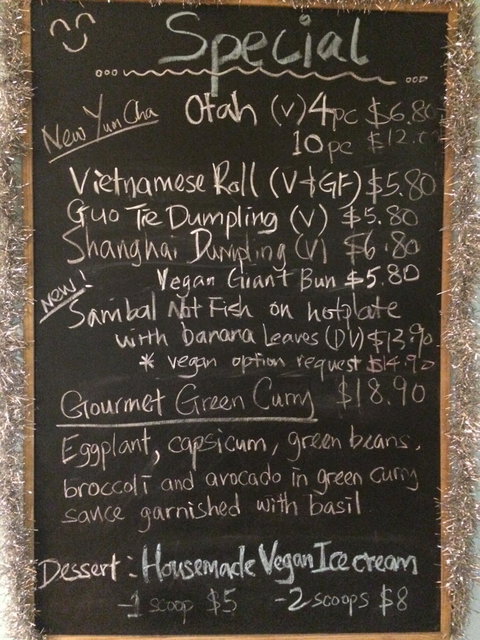 Special
New Yum Cha Otah (V) 4pc $6.80
10 pc $12.00
Vietnamese Roll (V+GF) $5.80
Guo Tie Dumpling (V) $5.80
Shanghai Dumpling (V) $6.80
Vegan Giant Bun $5.80
New! Sambal Not Fish on hotplate
with banana Leaves (DV) $13.90
* vegan option request $14.90
Gourmet Green Curry $18.90
Eggplant, capsicum, green beans,
broccoli and avocado in green curry
sauce garnished with basil
Dessert: Housemade Vegan Ice cream
-1 scoop $5 -2 scoops $8